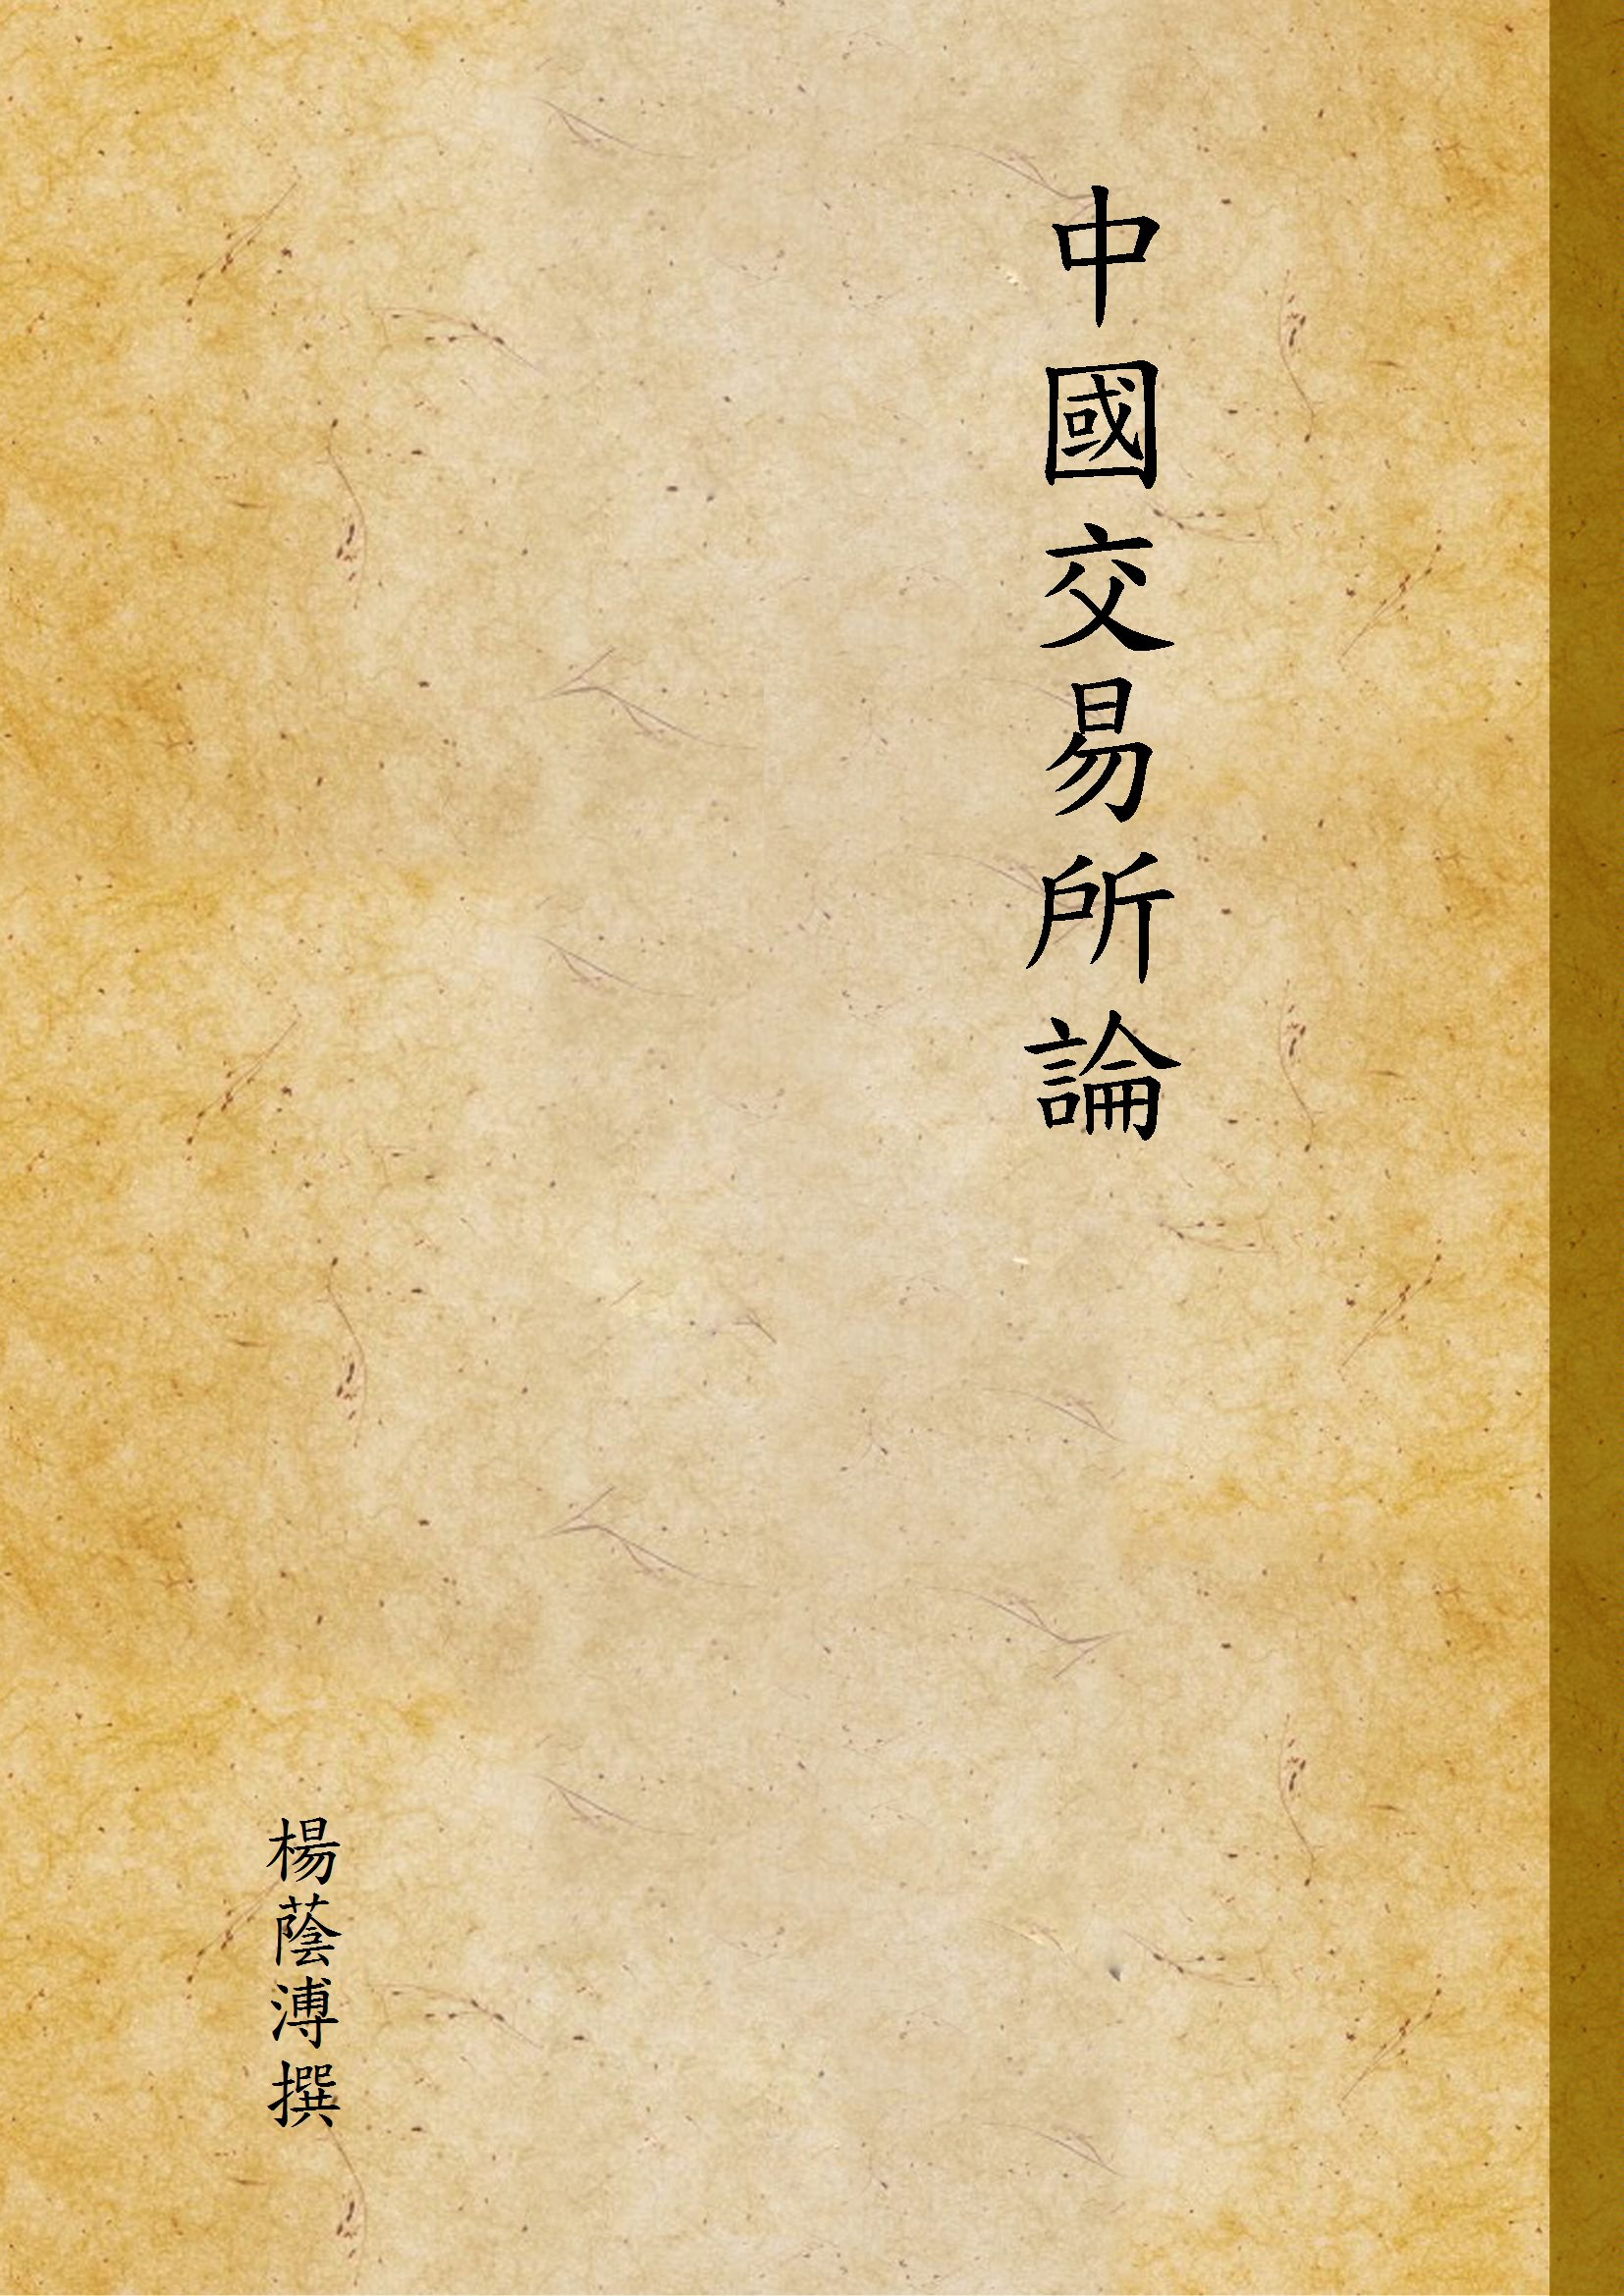 中國交易所論
楊蔭溥撰